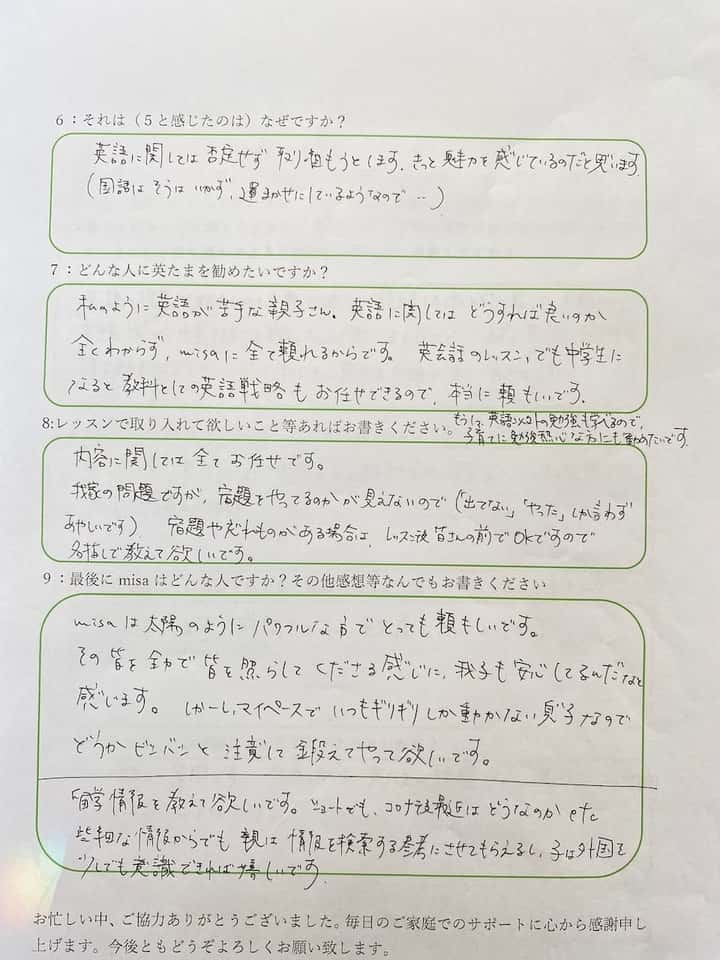 6：それは（５と感じたのは）なぜですか？
英語に関しては否定せず取り組もうとします。きっと魅力を感じているのだと思います
（国語はそうはいかず、運まかせにしているようなので‥）
7：どんな人に英たまを勧めたいですか？
私のように英語が苦手な親子さん。英語に関してはどうすれば良いのか
全くわからず、misaに全て頼れるからです。英会話のレッスン、でも中学生に
なると教科としての英語戦略もお任せできるので、本当に頼もしいです。
もしくは、英語以外の勉強も学べるので、
子育てに勉強熱心な方にも勧めたいです。
8:レッスンで取り入れて欲しいこと等あればお書きください。
内容に関しては全てお任せです。
我家の問題ですが、宿題をやってるのかが見えないので（「出てない」「やった」しか言わず
あやしいです） 宿題や忘れものがある場合は、レッスン後皆さんの前でOKですので
名指しで教えて欲しいです。
9：最後に misa はどんな人ですか？その他感想等なんでもお書きください
misaは太陽のようにパワフルな方でとっても頼もしいです。
その皆を全力で皆を照らしてくださる感じに、我子も安心してるんだなと
感じます。しかーし、マイペースでいつもギリギリしか動かない息子なので
どうかビシバシと注意して鍛えてやって欲しいです。
留学情報を教えて欲しいです。ショートでも、コロナ後最近はどうなのか etc
些細な情報からでも親は情報を検索する参考にさせてもらえるし、子は外国を
少しでも意識できれば嬉しいです。
お忙しい中、ご協力ありがとうございました。毎日のご家庭でのサポートに心から感謝申し
上げます。今後ともどうぞよろしくお願い致します。